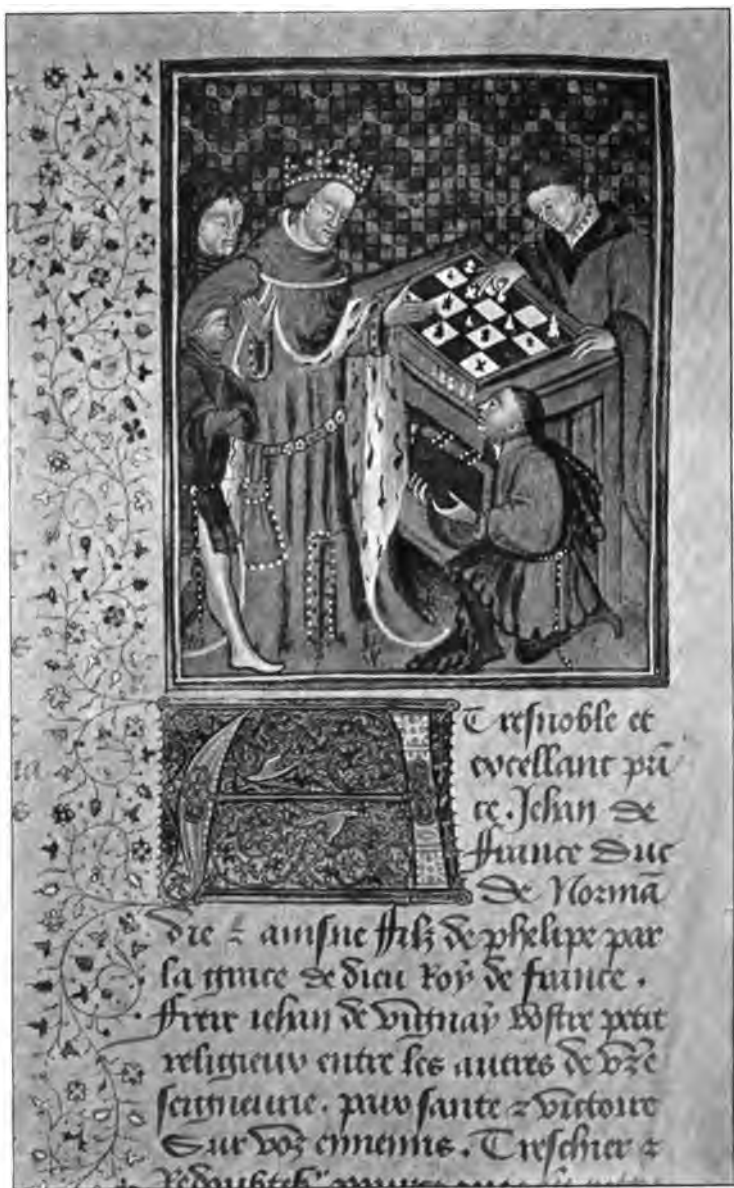 A Tresnoble et
excellant prī
ce. Jehan de
France Duc
de Normā
die ⁊ ainsne filz de phelipe par
la grace de dieu Roy de france.
Frere iehan de vignay vostre petit
religieux entre les autres de vr̄e
seigneurie. paix sante ⁊ victoire
Sur voz ennemis. Treschier ⁊